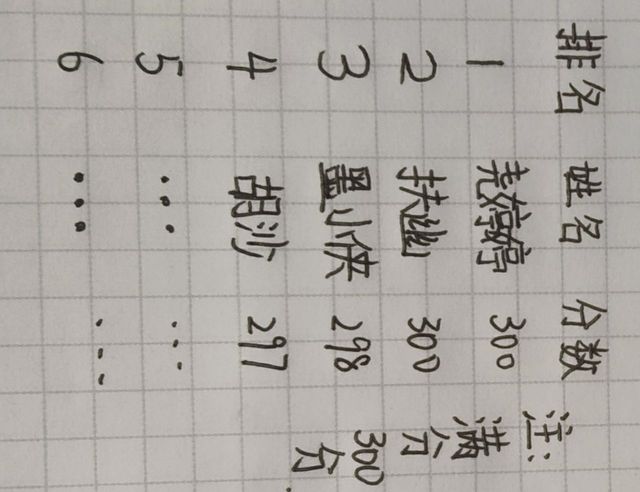 排名 姓名 分数
1 尧婷婷 300
2 扶幽 300
3 墨小侠 298
4 胡沙 297
5 ... ...
6 ... ...
注:
满分
300分